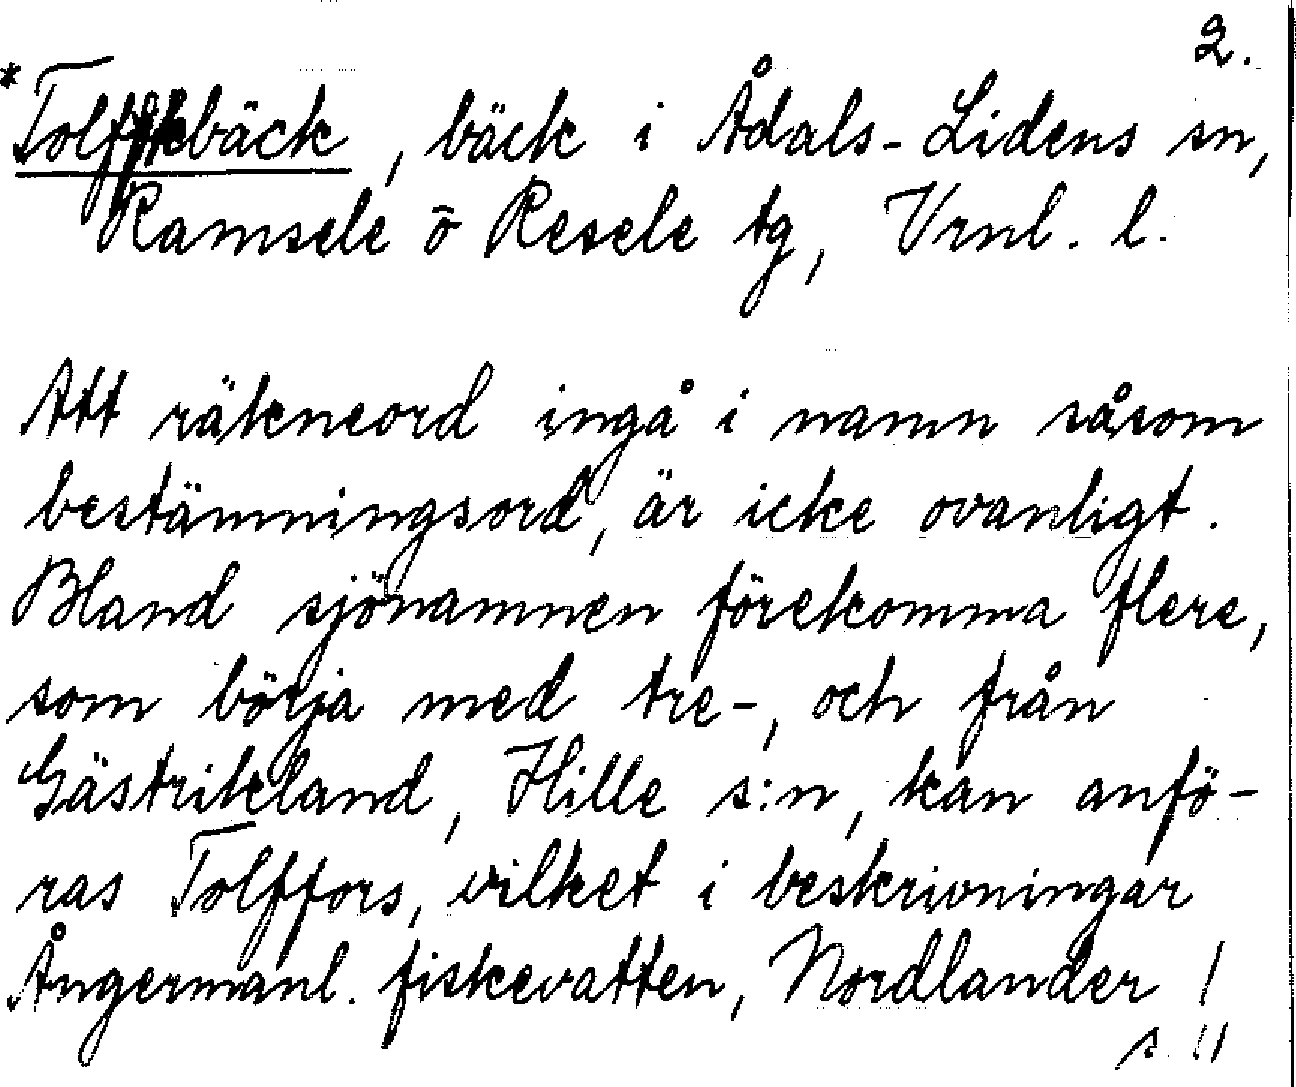 2.
*Tolffkbäck, bäck i Ådals-Lidens sn,
Ramsele o Resele tg, Vrnl. l.
Att räkneord ingå i namn såsom
bestämningsord, är icke ovanligt.
Bland sjönamnen förekomma flere,
som börja med tre-, och från
Gästrikland, Hille s:n, kan anfö-
ras Tolffors, vilket i beskrivningar
Ångermanl. fiskevatten, Nordlander /
s. 11